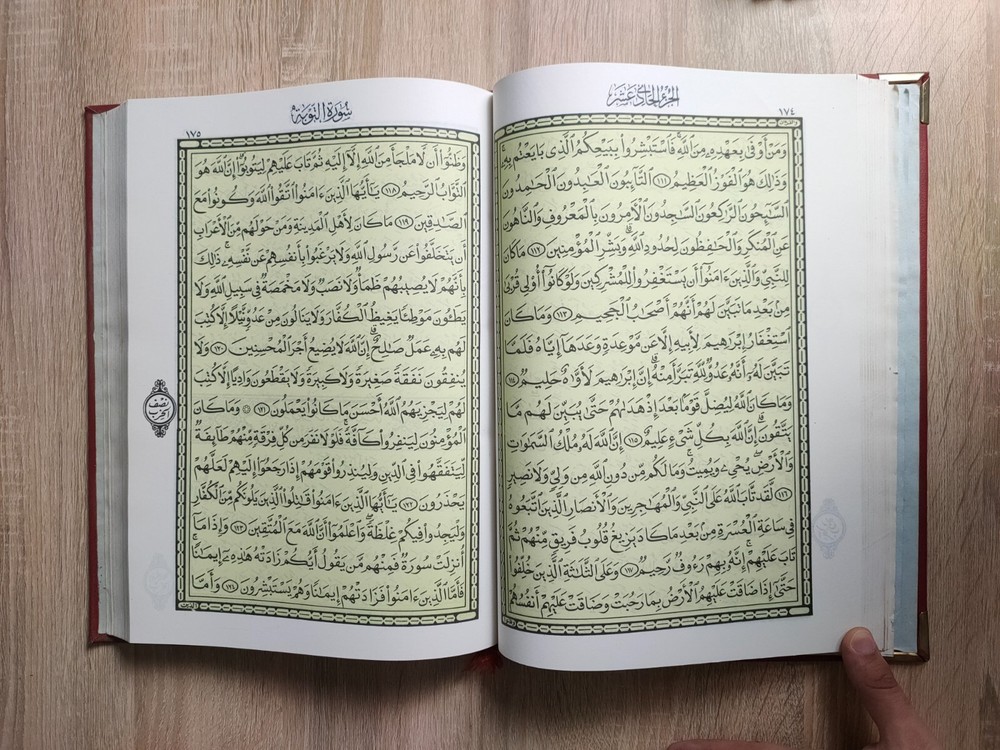 الجُزْءُ الْحَادِي عَشَرَ ١٧٤
وَمَنْ أَوْفَىٰ بِعَهْدِهِۦ مِنَ ٱللَّهِ ۚ فَٱسْتَبْشِرُوا۟ بِبَيْعِكُمُ ٱلَّذِى بَايَعْتُم بِهِۦ ۚ
وَذَٰلِكَ هُوَ ٱلْفَوْزُ ٱلْعَظِيمُ ١١١ ٱلتَّٰٓئِبُونَ ٱلْعَٰبِدُونَ ٱلْحَٰمِدُونَ
ٱلسَّٰٓئِحُونَ ٱلرَّٰكِعُونَ ٱلسَّٰجِدُونَ ٱلْءَامِرُونَ بِٱلْمَعْرُوفِ وَٱلنَّاهُونَ
عَنِ ٱلْمُنكَرِ وَٱلْحَٰفِظُونَ لِحُدُودِ ٱللَّهِ ۗ وَبَشِّرِ ٱلْمُؤْمِنِينَ ١١٢ مَا كَانَ
لِلنَّبِىِّ وَٱلَّذِينَ ءَامَنُوٓا۟ أَن يَسْتَغْفِرُوا۟ لِلْمُشْرِكِينَ وَلَوْ كَانُوٓا۟ أُو۟لِى قُرْبَىٰ
مِنۢ بَعْدِ مَا تَبَيَّنَ لَهُمْ أَنَّهُمْ أَصْحَٰبُ ٱلْجَحِيمِ ١١٣ وَمَا كَانَ
ٱسْتِغْفَارُ إِبْرَٰهِيمَ لِأَبِيهِ إِلَّا عَن مَّوْعِدَةٍ وَعَدَهَآ إِيَّاهُ فَلَمَّا
تَبَيَّنَ لَهُۥٓ أَنَّهُۥ عَدُوٌّ لِّلَّهِ تَبَرَّأَ مِنْهُ ۚ إِنَّ إِبْرَٰهِيمَ لَأَوَّٰهٌ حَلِيمٌ ١١٤
وَمَا كَانَ ٱللَّهُ لِيُضِلَّ قَوْمًۢا بَعْدَ إِذْ هَدَىٰهُمْ حَتَّىٰ يُبَيِّنَ لَهُم مَّا
يَتَّقُونَ ۚ إِنَّ ٱللَّهَ بِكُلِّ شَىْءٍ عَلِيمٌ ١١٥ إِنَّ ٱللَّهَ لَهُۥ مُلْكُ ٱلسَّمَٰوَٰتِ
وَٱلْأَرْضِ ۖ يُحْىِۦ وَيُمِيتُ ۚ وَمَا لَكُم مِّن دُونِ ٱللَّهِ مِن وَلِىٍّ وَلَا نَصِيرٍ
١١٦ لَّقَد تَّابَ ٱللَّهُ عَلَى ٱلنَّبِىِّ وَٱلْمُهَٰجِرِينَ وَٱلْأَنصَارِ ٱلَّذِينَ ٱتَّبَعُوهُ
فِى سَاعَةِ ٱلْعُسْرَةِ مِنۢ بَعْدِ مَا كَادَ يَزِيغُ قُلُوبُ فَرِيقٍ مِّنْهُمْ ثُمَّ
تَابَ عَلَيْهِمْ ۚ إِنَّهُۥ بِهِمْ رَءُوفٌ رَّحِيمٌ ١١٧ وَعَلَى ٱلثَّلَٰثَةِ ٱلَّذِينَ خُلِّفُوا۟
حَتَّىٰٓ إِذَا ضَاقَتْ عَلَيْهِمُ ٱلْأَرْضُ بِمَا رَحُبَتْ وَضَاقَتْ عَلَيْهِمْ أَنفُسُهُمْ
سُورَةُ التَّوْبَةِ ١٧٥
وَظَنُّوٓا۟ أَن لَّا مَلْجَأَ مِنَ ٱللَّهِ إِلَّآ إِلَيْهِ ثُمَّ تَابَ عَلَيْهِمْ لِيَتُوبُوٓا۟ ۚ إِنَّ ٱللَّهَ هُوَ
ٱلتَّوَّابُ ٱلرَّحِيمُ ١١٨ يَٰٓأَيُّهَا ٱلَّذِينَ ءَامَنُوا۟ ٱتَّقُوا۟ ٱللَّهَ وَكُونُوا۟ مَعَ
ٱلصَّٰدِقِينَ ١١٩ مَا كَانَ لِأَهْلِ ٱلْمَدِينَةِ وَمَنْ حَوْلَهُم مِّنَ ٱلْأَعْرَابِ
أَن يَتَخَلَّفُوا۟ عَن رَّسُولِ ٱللَّهِ وَلَا يَرْغَبُوا۟ بِأَنفُسِهِمْ عَن نَّفْسِهِۦ ۚ ذَٰلِكَ
بِأَنَّهُمْ لَا يُصِيبُهُمْ ظَمَأٌ وَلَا نَصَبٌ وَلَا مَخْمَصَةٌ فِى سَبِيلِ ٱللَّهِ وَلَا
يَطَـُٔونَ مَوْطِئًا يَغِيظُ ٱلْكُفَّارَ وَلَا يَنَالُونَ مِنْ عَدُوٍّ نَّيْلًا إِلَّا كُتِبَ
لَهُم بِهِۦ عَمَلٌ صَٰلِحٌ ۚ إِنَّ ٱللَّهَ لَا يُضِيعُ أَجْرَ ٱلْمُحْسِنِينَ ١٢٠ وَلَا
يُنفِقُونَ نَفَقَةً صَغِيرَةً وَلَا كَبِيرَةً وَلَا يَقْطَعُونَ وَادِيًا إِلَّا كُتِبَ
لَهُمْ لِيَجْزِيَهُمُ ٱللَّهُ أَحْسَنَ مَا كَانُوا۟ يَعْمَلُونَ ١٢١ ۞ وَمَا كَانَ
نِصْفُ الحِزْبِ
ٱلْمُؤْمِنُونَ لِيَنفِرُوا۟ كَآفَّةً ۚ فَلَوْلَا نَفَرَ مِن كُلِّ فِرْقَةٍ مِّنْهُمْ طَآئِفَةٌ
لِّيَتَفَقَّهُوا۟ فِى ٱلدِّينِ وَلِيُنذِرُوا۟ قَوْمَهُمْ إِذَا رَجَعُوٓا۟ إِلَيْهِمْ لَعَلَّهُمْ
يَحْذَرُونَ ١٢٢ يَٰٓأَيُّهَا ٱلَّذِينَ ءَامَنُوا۟ قَٰتِلُوا۟ ٱلَّذِينَ يَلُونَكُم مِّنَ ٱلْكُفَّارِ
وَلْيَجِدُوا۟ فِيكُمْ غِلْظَةً ۚ وَٱعْلَمُوٓا۟ أَنَّ ٱللَّهَ مَعَ ٱلْمُتَّقِينَ ١٢٣ وَإِذَا مَآ
أُنزِلَتْ سُورَةٌ فَمِنْهُم مَّن يَقُولُ أَيُّكُمْ زَادَتْهُ هَٰذِهِۦٓ إِيمَٰنًا ۚ
فَأَمَّا ٱلَّذِينَ ءَامَنُوا۟ فَزَادَتْهُمْ إِيمَٰنًا وَهُمْ يَسْتَبْشِرُونَ ١٢٤ وَأَمَّا